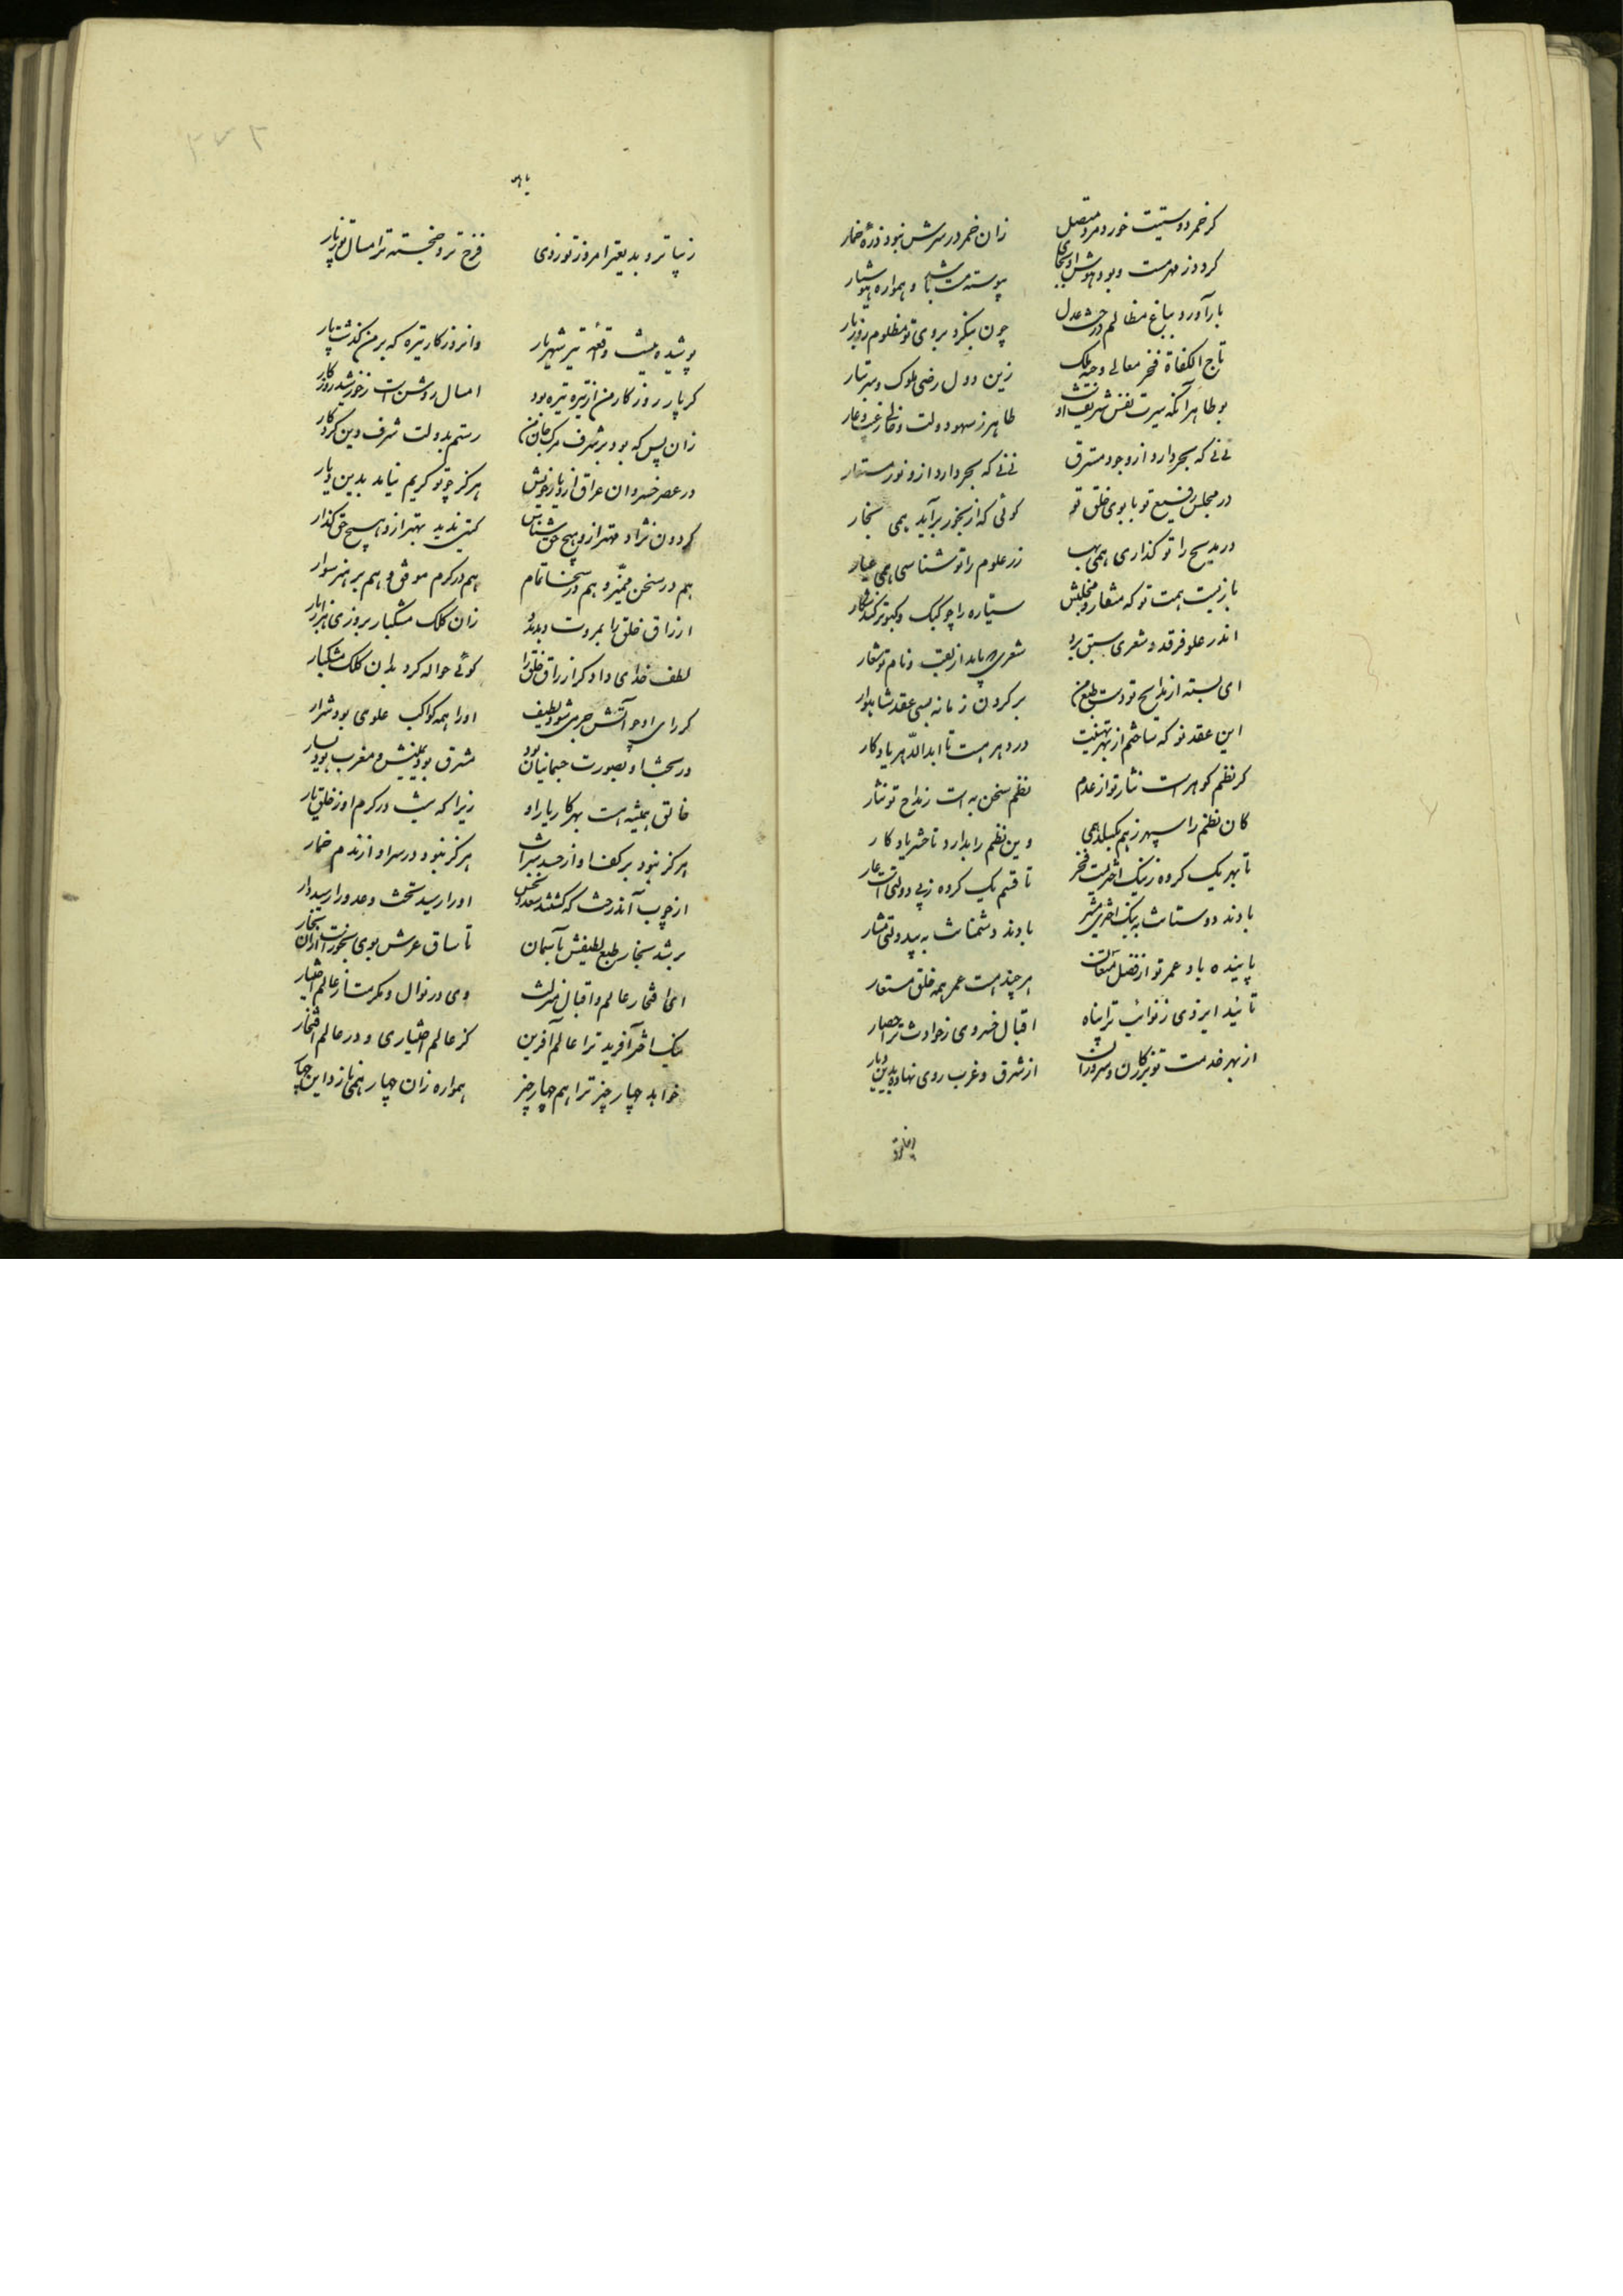 کر خمر دوستیت خورد مرد متصل زان خمر در سرش نبود ذره خمار
کردد ز مهر مست و بود هوش او بجای پیوسته مست باشد و همواره هوشیار
بار آورد بباغ مظالم درخت عدل چون بنکرد بروی تو مظلوم روز بار
تاج الکفاة فخر معالی وجیه ملک زین دول رضی ملوک و سر تبار
بوطاهر آنکه سیرت نفس شریف او طاهر ز سهو دولت و خالی ز عیب و عار
نی نی که بحر دارد ازو جود مسترق نی نی که بحر دارد ازو نور مستعار
در مجلس رفیع تو با بوی خلق تو کوئی که از بخور برآید همی بخار
در مدیح را تو کذاری همی بها زر علوم را تو شناسی همی عیار
بازیست همت تو که منقار و مخلبش ستاره را چو کبک و کبوتر کند شکار
اندر علو فرقد و شعری سبق برد شعری که یابد از لقب و نام تو شعار
ای بسته از مدایح تو دست طبع من بر کردن زمانه بسی عقد شاهوار
این عقد نو که ساختم از بهر تهنیت در دهر هست تا ابد الدهر یادکار
کر نظم کوهر است نثار تو از عدم نظم سخن به است ز مداح تو نثار
کان نظم را سپهر ز هم بکسلد همی وین نظم را بدارد تا حشر یادکار
تا بهر یک کروه ز نیک اختریست فخر تا قسم یک کروه ز بی دولتی است عار
بادند دوستانت به نیک اختری مشیر بادند دشمنانت به بیدولتی مشار
پاینده باد عمر تو از فضل مستعان هر چند هست عمر همه خلق مستعار
تائید ایزدی ز نوائب ترا پناه اقبال خسروی ز حوادث ترا حصار
از بهر خدمت تو بزرکان و سروران از شرق و غرب روی نهاده بدین دیار
زیباتر و بدیعتر امروز تو ز دی فرخ‌تر و خجسته‌تر امسال تو ز پار
پوشیده نیست واقعه تیر شهریار وان روزکار تیره که بر من کذشت پار
کر پار روزکار من از تیر تیره بود امسال روشن است ز خورشید روزکار
زان پس که بود بر شرف مرک جان من رستم بدولت شرف دین کردکار
در عصر خسروان عراق از دیار خویش هرکز چو تو کریم نیامد بدین دیار
کردون نژاد مهتر ازو هیچ حق شناس کیتی ندید بهتر ازو هیچ حق کذار
هم در سخن ممیز و هم در سخا تمام هم در کرم موفق و هم بر هنر سوار
ارزاق خلق را بمروت دهد زان کلک مشکبار بروزی هزار بار
لطف خدای داد کر ارزاق خلق را کوئی حواله کرد بدان کلک مشکبار
کر رای او چو آتش جرمی شود لطیف او را همه کواکب علوی بود شرار
در سخا و بصورت جسمانیان بود مشرق بود یمینش و مغرب بود یسار
خالق همیشه هست بهر کار یار او زیرا که نیست در کرم او ز خلق یار
هرکز نبود بر کف او از حسد اثر هرکز نبود در سر او از ندم خمار
از چوب آن درخت که کشتند سعد و نحس او را رسید تخت و عدو را رسید دار
بر شد بخار طبع لطیفش بآسمان تا ساق عرش بوی بخورست ازان بخار
ای افتخار عالم و اقبال منزلت وی در نوال و مکرمت از عالم اختیار
نیک اختر آفرید ترا عالم آفرین کز عالم اختیاری و در عالم افتخار
خواهد چهار چیز ترا هم چهار چیز همواره زان چهار همی نازد این چهار